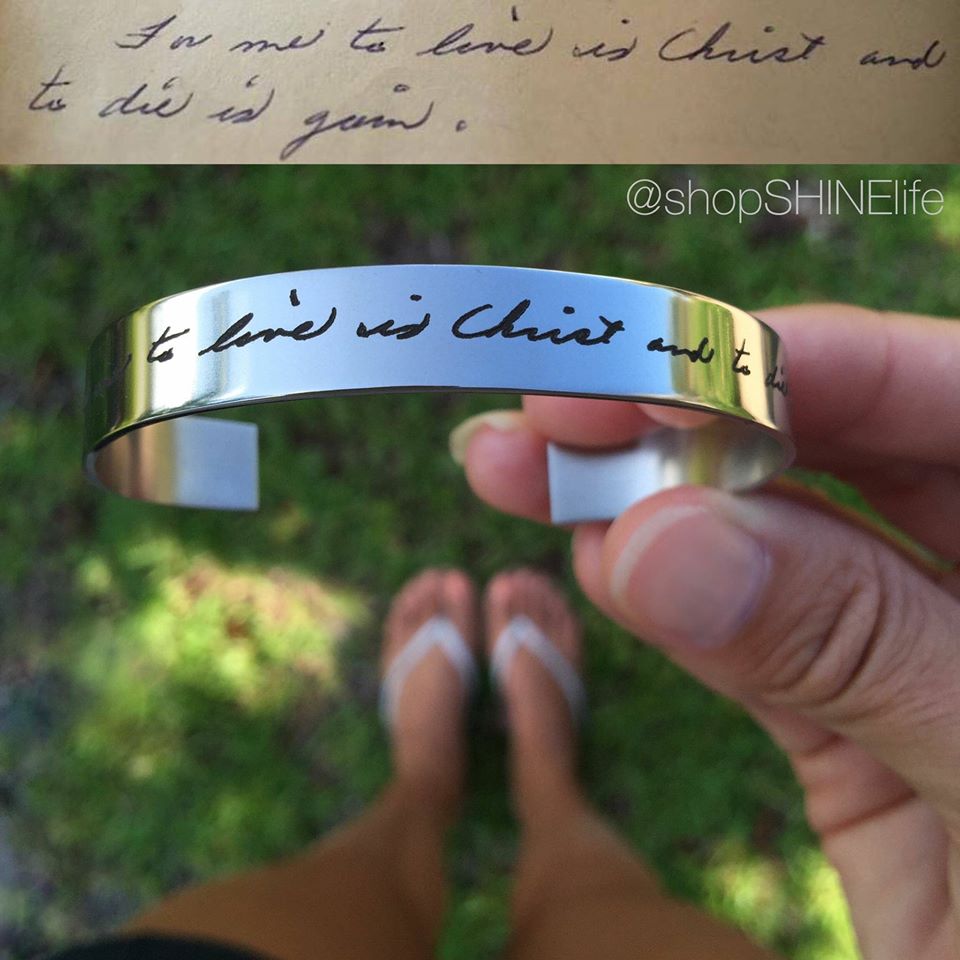 For me to live is Christ and
to die is gain.
@shopSHINElife
to live is Christ and to die